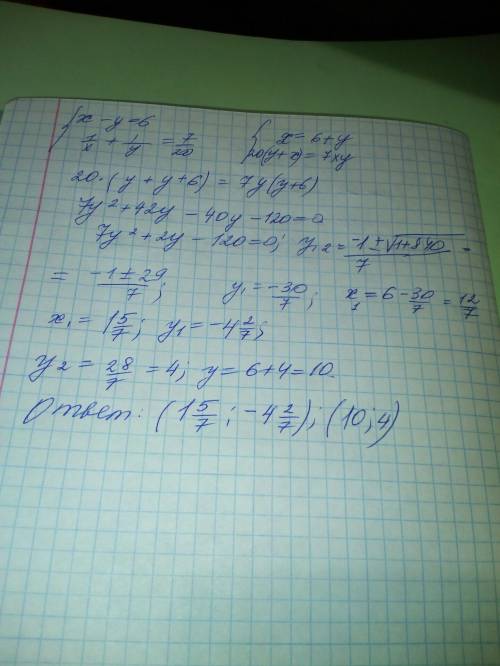 { x - y = 6
1/x + 1/y = 7/20 { x = 6 + y
20(y + x) = 7xy
20·(y + y + 6) = 7y(y + 6)
7y² + 42y - 40y - 120 = 0
7y² + 2y - 120 = 0; y₁,₂ = (-1 ± √(1 + 840))/7 =
= (-1 ± 29)/7; y₁ = -30/7; x₁ = 6 - 30/7 = 12/7
x₁ = 1 5/7; y₁ = -4 2/7;
y₂ = 28/7 = 4; y = 6 + 4 = 10.
Ответ: (1 5/7; -4 2/7); (10; 4)